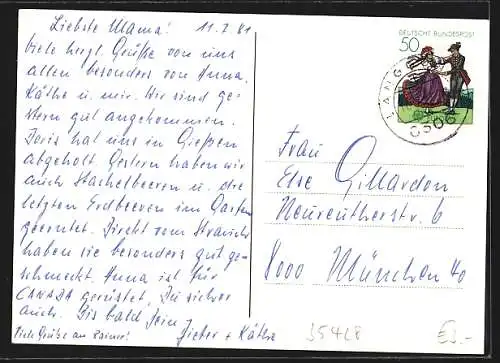 Liebste Mama! 11.7.81
viele herzl. Grüße von uns
allen besonders von Anna,
Käthe u. mir. Wir sind ge-
stern gut angekommen.
Joris hat uns in Gießen
abgeholt. Gestern haben wir
auch Stachelbeeren u. die
letzten Erdbeeren im Garten
geerntet. Direkt vom Strauch
haben sie besonders gut ge-
schmeckt. Anna ist für
CANADA gerüstet, Du sicher
auch. Bis bald Dein
Dieter + Käthe
Viele Grüße an Rainer!
DEUTSCHE BUNDESPOST
50
LANG
6306
Frau
Else Gillardon
Neureutherstr. 6
8000 München 40
35428
€3.-